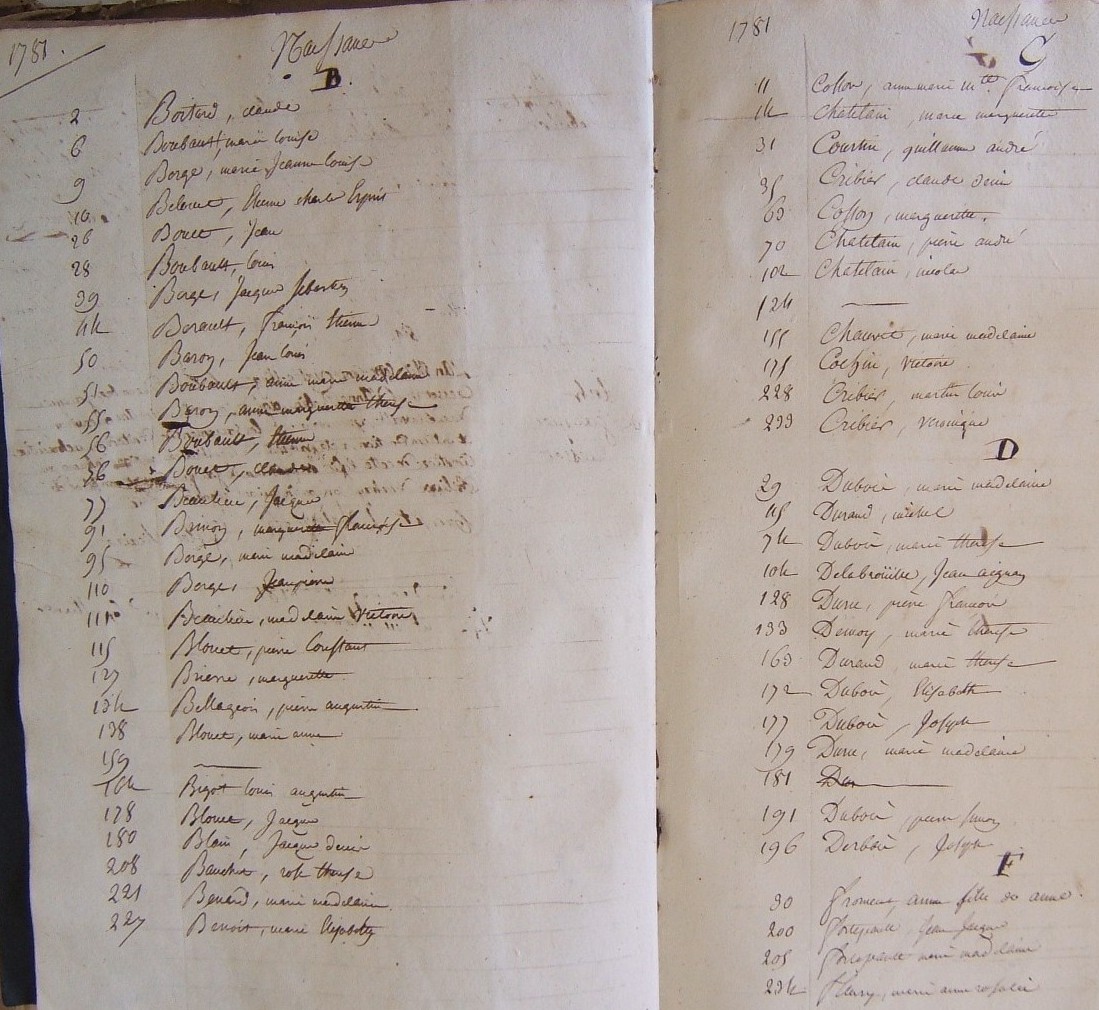 1781.
Naissance
B.
2 Boitard, claude
6 Boubault, marie louise
9 Borge, marie Jeanne louise
10 Etienne charle
26 Bouet, Jean
28 Boubault, louis
39 Borge, Jacque sebastien
44 Berault, françois Etienne
50 Baron, Jean louis
51 Boubault, anne marie madelaine
55 Baron, anne margueritte therese
56 Boubault, Etienne
56 Bouet, claude
77 Beaulieu, Jacque
91 Brinon, marguerite françoise
95 Borge, marie madelaine
110 Borge, Jean pierre
111 Beaulieu, madelaine Victoire
115 Blouet, pierre Constant
127 Brierre, margueritte
134 Bellageois, pierre augustin
138 Blouet, marie anne
159 —
164 Bigot louis augustin
178 Blouet, Jacque
180 Blain, Jacque denis
208 rose therese
221 Benard, marie madelaine
227 Benoist, marie Elisabeth
1781
Naissance
C
11 Cosson, anne marie Mtte françoise
14 Chatelain, marie margueritte
31 Courtin, guillaume andré
35 Cribier, claude denis
63 Cosson, marguerite.
70 Chatelain, pierre andré
102 Chatelain, nicolas
124 —
155 Chauvet, marie madelaine
175 Cochin, Victoire
228 Cribier, martin louis
233 Cribier, Veronique
D
29 Dubois, marie madelaine
45 Durand, michel
74 Dubois, marie therese
104 Jean aignan
128 Durie, pierre françois
133 Demoy, marie therese
163 Durand, marie therese
172 Dubois, Elisabeth
177 Dubois, Joseph
179 Durie, marie madelaine
181 Du
191 Dubois, pierre simon
196 Derbois, Joseph
F
30 froment, anne fille de anne.
200 Jean Jacque
205 marie madelaine
234 fleury, marie anne rosalie